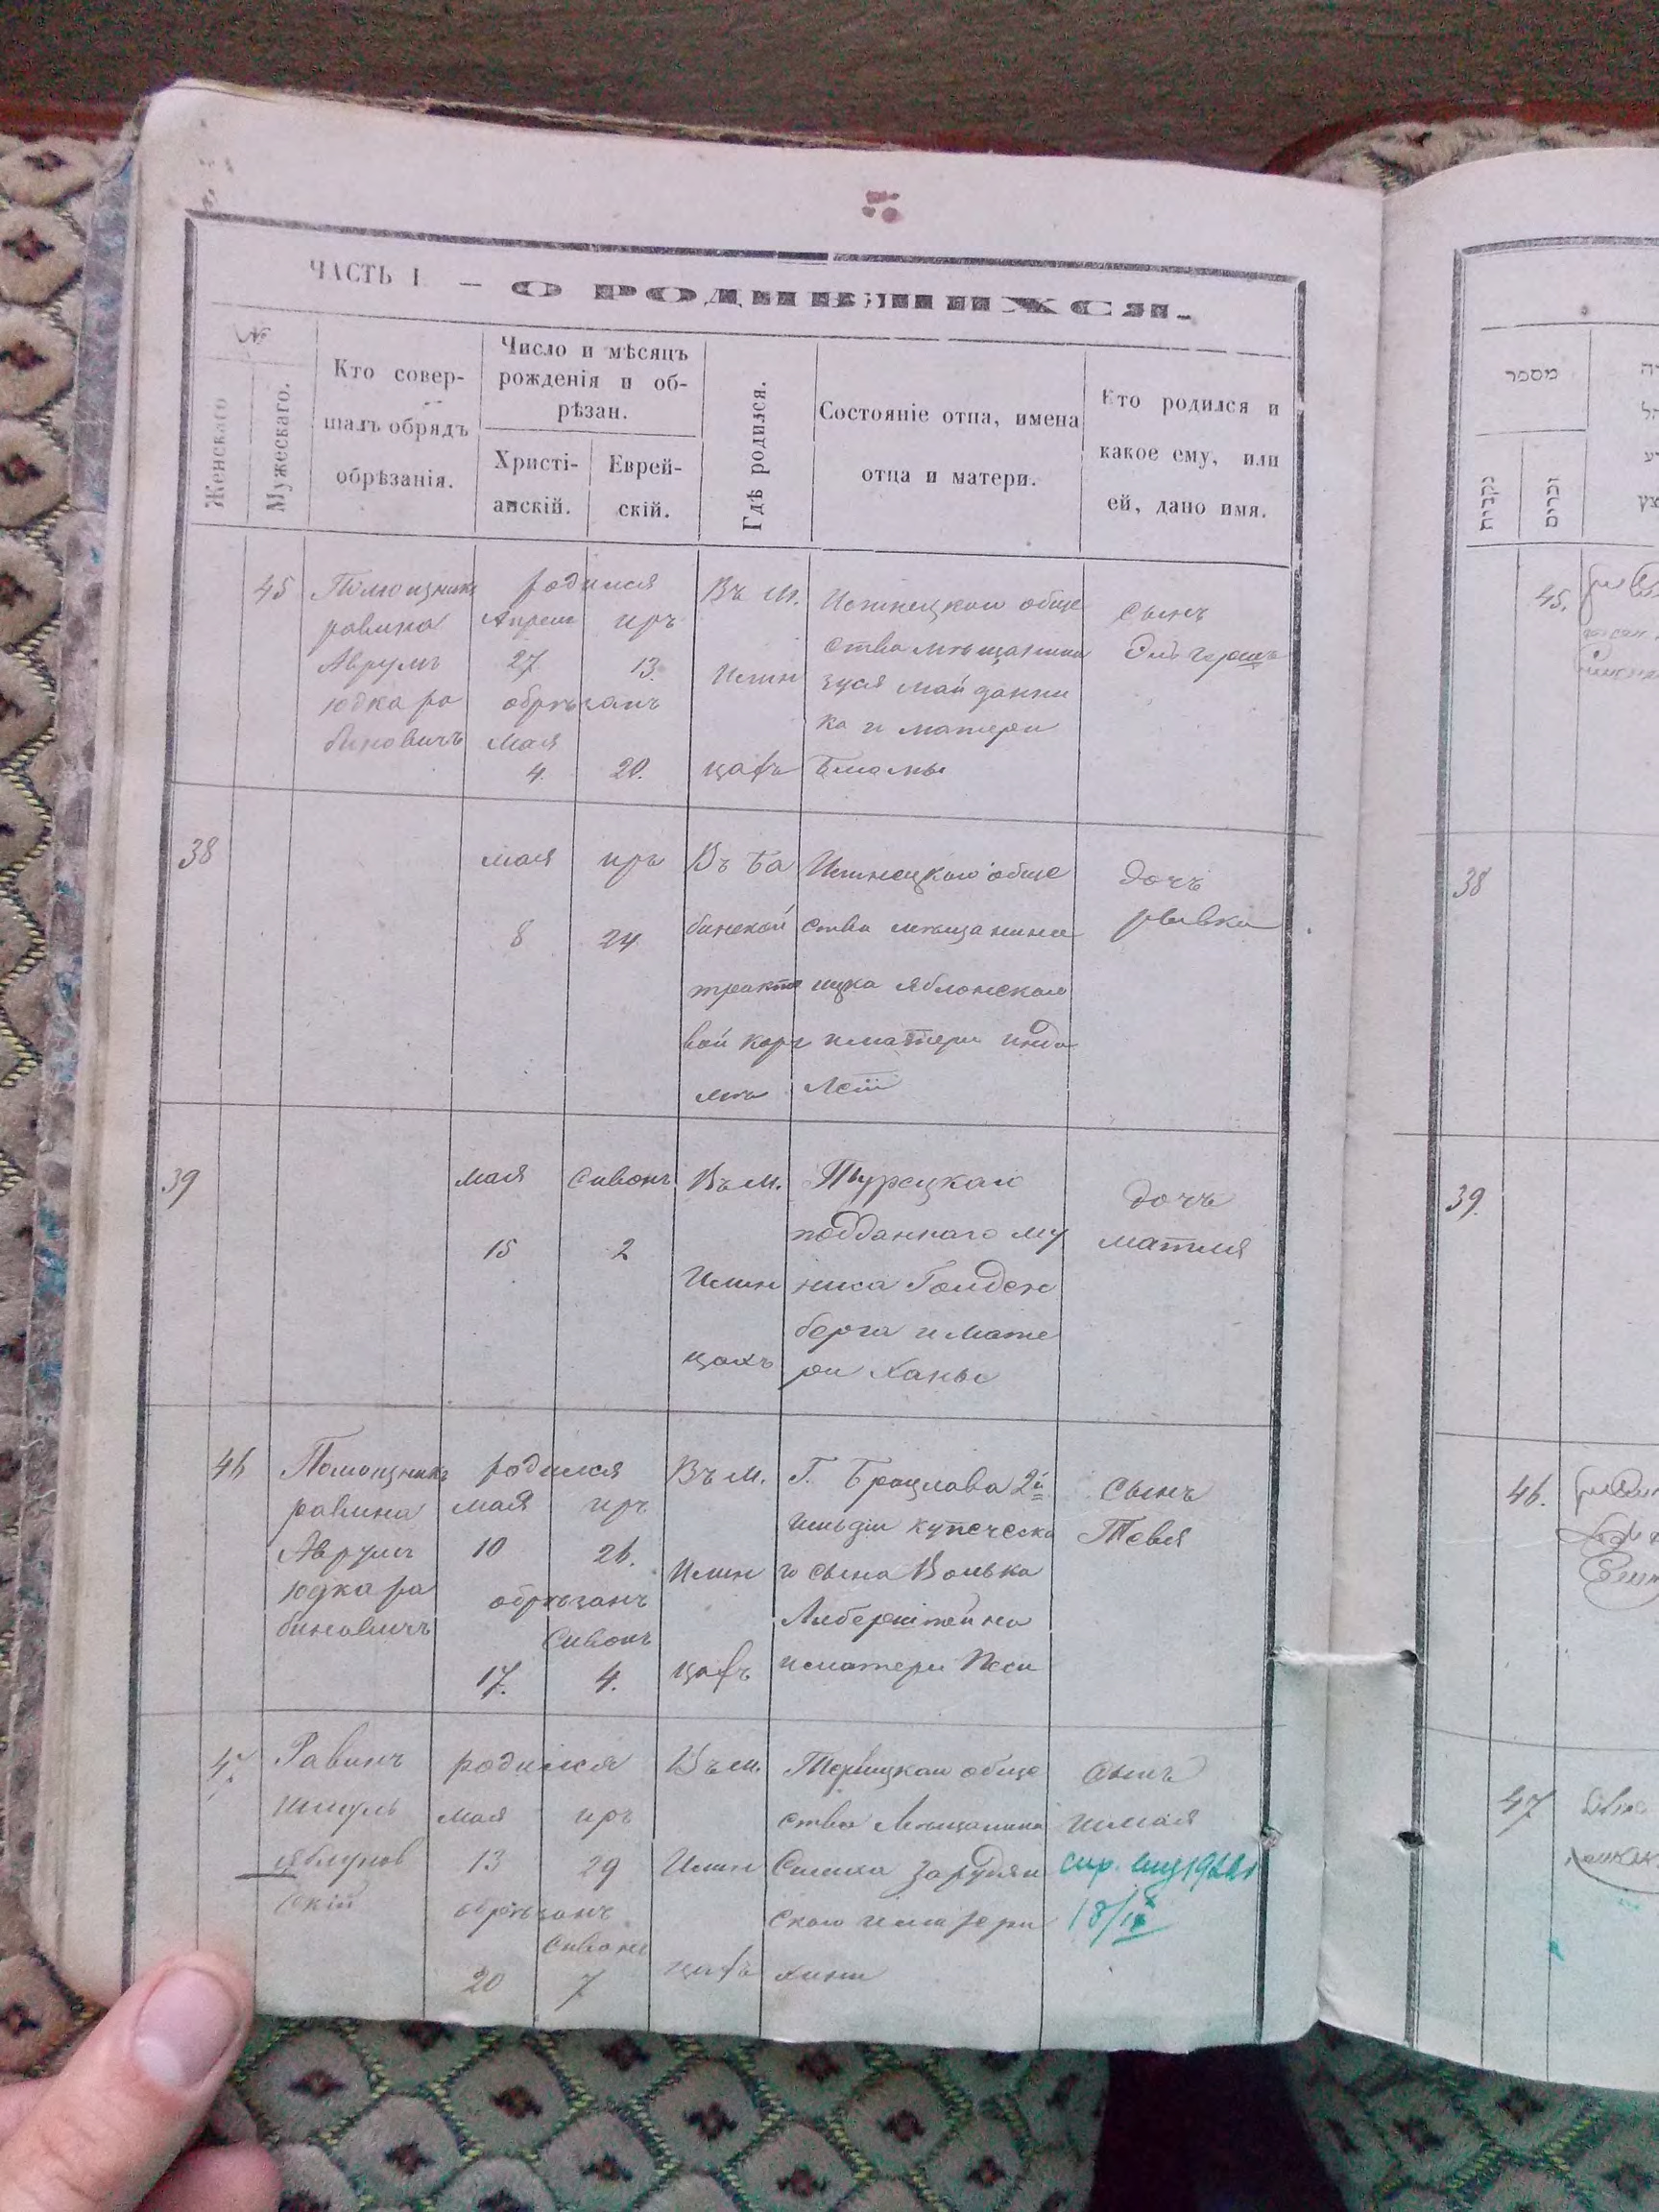 ЧАСТЬ I. — О РОДИВШИХСЯ.
№
Женскаго
Мужескаго.
Кто совер-
шалъ обрядъ
обрѣзанія.
Число и мѣсяцъ
рожденія и об-
рѣзан.
Христі-
анскій.
Еврей-
скій.
Гдѣ родился.
Состояніе отца, имена
отца и матери.
Кто родился и
какое ему, или
ей, дано имя.
45
Помощникъ
равина
Аврумъ
Юдка ра
биновичъ
родился
Апреля
27
иръ
13.
обрѣзанъ
мая
4.
20.
Въ м.
Илин
цахъ
Илинецкаго обще
ства мѣщанина
Зуся Майданни
ка и матери
сынъ
38
мая
8
иръ
24
Въ Ба
бинской
тракто
вой кор
Илинецкаго обще
ства мѣщанина
Яблонскаго
и матери
дочь
Ривка
39
мая
15
Сивонъ
2
Въ м.
Илин
цахъ
Турецкаго
подданнаго Му
ниса Голден
берга и мате
ри Ханы
дочь
Матля
46
Помощникъ
равина
Аврумъ
Юдка ра
биновичъ
родился
мая
10
иръ
26.
обрѣзанъ
Сивонъ
17.
4.
Въ м.
Илин
цахъ
Г. Брацлава 2й
гильдіи купеческа
го сына Волька
Либерштейна
и матери Песи
сынъ
Тевя
47
Равинъ
Шмуль
Яблунов
скій
родился
мая
13
иръ
29
обрѣзанъ
Сивонъ
20
7
Въ м.
Илин
цахъ
обще
ства мѣщанина
Зарудян
скаго и матери
Хини
сынъ
Шмая
18/IX
מספר
נקבות
זכרים
45.
38
39.
46.
47